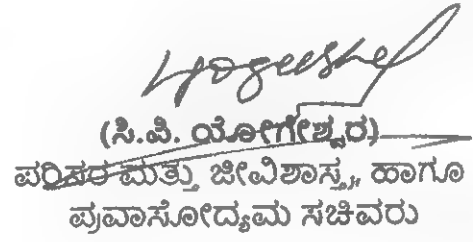 (ಸಿ.ಪಿ. ಯೋಗೇಶ್ವರ)
ಪರಿಸರ ಮತ್ತು ಜೀವಿಶಾಸ್ತ್ರ, ಹಾಗೂ
ಪ್ರವಾಸೋದ್ಯಮ ಸಚಿವರು